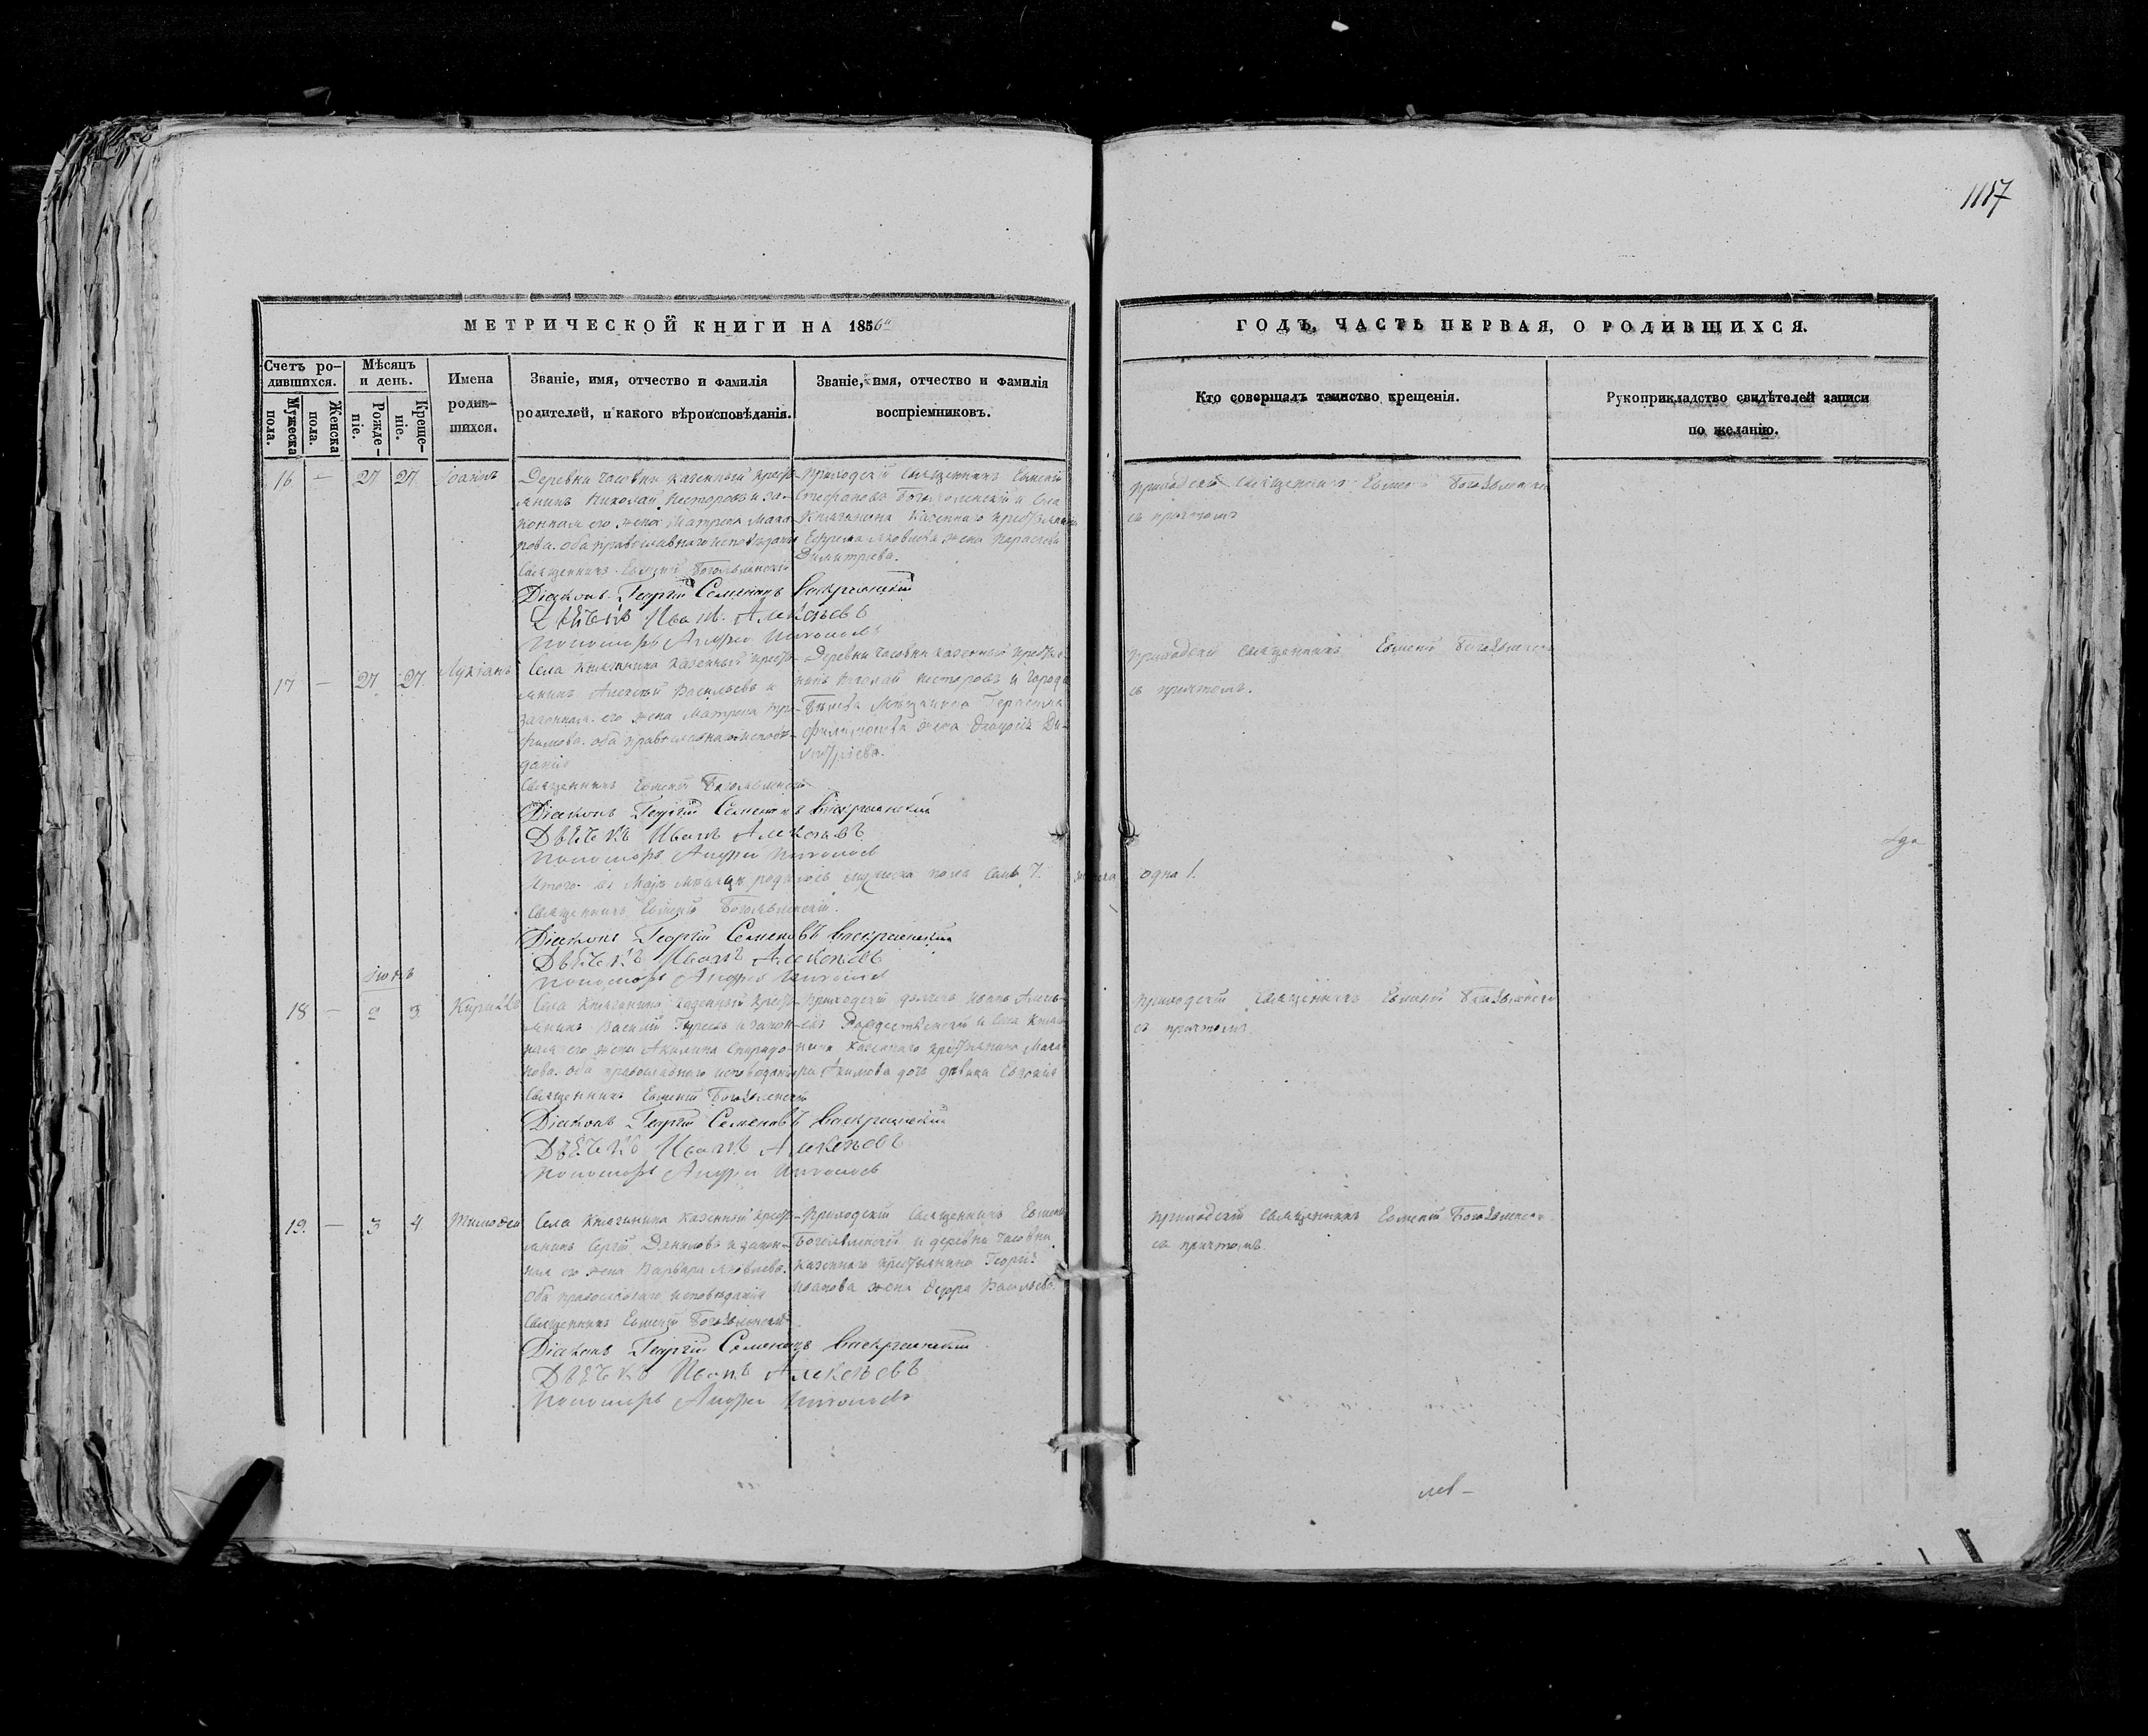 1117
МЕТРИЧЕСКОЙ КНИГИ НА 1856й
ГОДЪ, ЧАСТЬ ПЕРВАЯ, О РОДИВШИХСЯ.
Счетъ ро-
дившихся.
Мужеска
пола.
Женска
пола.
Мѣсяцъ
и день.
Рожде-
ніе.
Креще-
ніе.
Имена
родив-
шихся.
Званіе, имя, отчество и фамилія
родителей, и какого вѣроисповѣданія.
Званіе, имя, отчество и фамилія
воспріемниковъ.
Кто совершалъ таинство крещенія.
Рукоприкладство свидѣтелей записи
по желанію.
16 — 27 27 Іоаннъ
Деревни Часовни казенный крестъ-
янинъ Николай Несторовъ и за-
конная его жена Матрена
оба православнаго исповѣданія
Священникъ Евменій Богоявленскій
Діаконъ Георгій Семеновъ Воскресенскій
Дьячекъ Иванъ Алексѣевъ
Пономарь Андрей
Приходскій священникъ Евменій
Стефановъ Богоявленскій и села
Княгинина казеннаго крестьянина
Ефрема Яковлева жена Параскева
Димитріева.
приходскій священникъ Евменій Богоявленскій
съ причтомъ
17 — 27 27 Лукіанъ
Села Княгинина казенный крестъ-
янинъ Алексѣй Васильевъ и
законная его жена Матрена Тро-
фимова. оба православнаго исповѣ-
данія
Священникъ Евменій Богоявленскій
Діаконъ Георгій Семеновъ Воскресенскій
Дьячекъ Иванъ Алексѣевъ
Пономарь Андрей
Деревни Часовни казенный крестья
нинъ Николай Несторовъ и города
Мѣщанина Герасима
Филимонова жена Ди-
митріева.
приходскій священникъ Евменій Богоявленскій
съ причтомъ.
Итого въ Маѣ мѣсяцѣ родилось мужеска пола семь 7. женска одна 1.
Священникъ Евменій Богоявленскій.
Діаконъ Георгій Семеновъ Воскресенскій
Дьячекъ Иванъ Алексѣевъ
Пономарь Андрей
Іюнь
18 — 2 3 Кириллъ
Села Княгинина казенный крест-
янинъ Василій Гурьевъ и закон-
ная его жена Акилина Спиридо-
нова. оба православнаго исповѣданія
Священникъ Евменій Богоявленскій
Діаконъ Георгій Семеновъ Воскресенскій
Дьячекъ Иванъ Алексѣевъ
Пономарь Андрей
Приходскій дьячекъ Иванъ Алексѣ-
евъ Рождественскій и села Княги-
нина казеннаго крестьянина Мака-
ра Акимова дочь дѣвица Евдокія
приходскій священникъ Евменій Богоявленскій
съ причтомъ.
19. — 3 4. Тимофей
Села Княгинина казенный крест-
янинъ Сергій Даниловъ и закон-
ная его жена Варвара Яковлева.
оба православнаго исповѣданія
Священникъ Евменій Богоявленскій
Діаконъ Георгій Семеновъ Воскресенскій
Дьячекъ Иванъ Алексѣевъ
Пономарь Андрей
Приходскій Священникъ Евменій
Богоявленскій и деревни Часовни
казеннаго крестьянина Георгія
Иванова жена Ѳедора Васильева.
приходскій священникъ Евменій Богоявленскій
съ причтомъ.